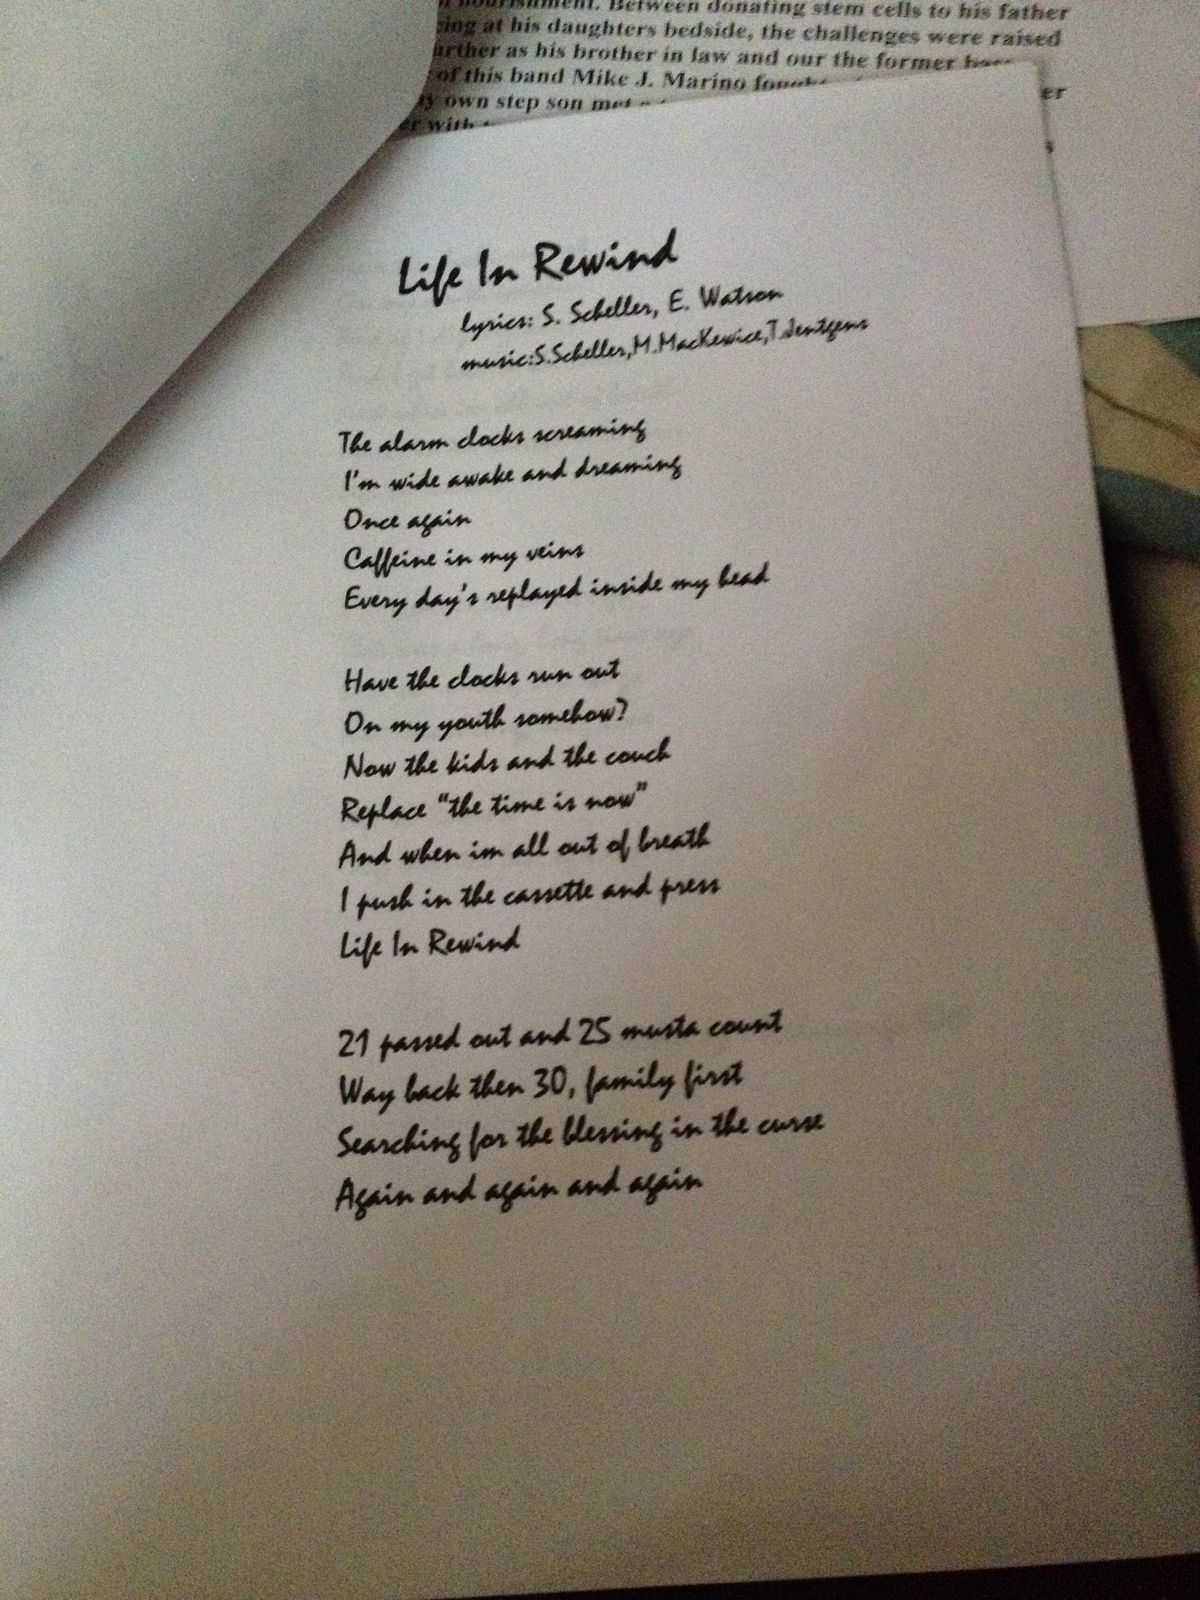 nourishment. Between donating stem cells to his father
at his daughters bedside, the challenges were raised
as his brother in law and our the former
of this band Mike J. Marino fought
own step son met
with
Life In Rewind
lyrics: S. Scheller, E. Watson
music:S.Scheller,M.MacKewice,T.Jentgens
The alarm clocks screaming
I'm wide awake and dreaming
Once again
Caffeine in my veins
Every day's replayed inside my head
Have the clocks run out
On my youth somehow?
Now the kids and the couch
Replace "the time is now"
And when im all out of breath
I push in the cassette and press
Life In Rewind
21 passed out and 25 musta count
Way back then 30, family first
Searching for the blessing in the curse
Again and again and again